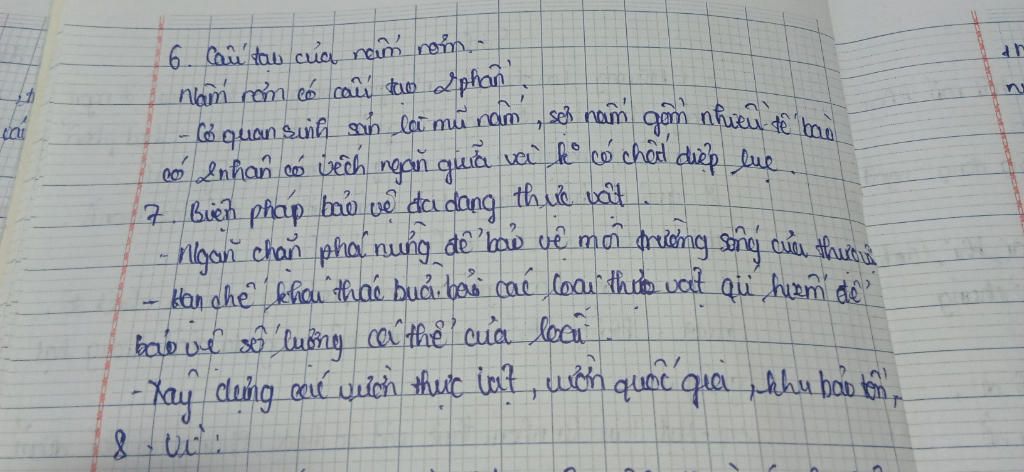 6. Cấu tạo của nấm rơm.
Nấm rơm có cấu tạo 2 phần.
- Cơ quan sinh sản là mũ nấm, sợi nấm gồm nhiều tế bào
có 2 nhân có vách ngăn giữa và k° có chất diệp lục.
7. Biện pháp bảo vệ đa dạng thực vật.
- Ngăn chặn phá rừng để bảo vệ môi trường sống của thực vật
- Hạn chế khai thác bừa bãi các loài thực vật quí hiếm để
bảo vệ số lượng cá thể của loài.
- Xây dựng các vườn thực vật, vườn quốc gia, khu bảo tồn,
8. Vì: